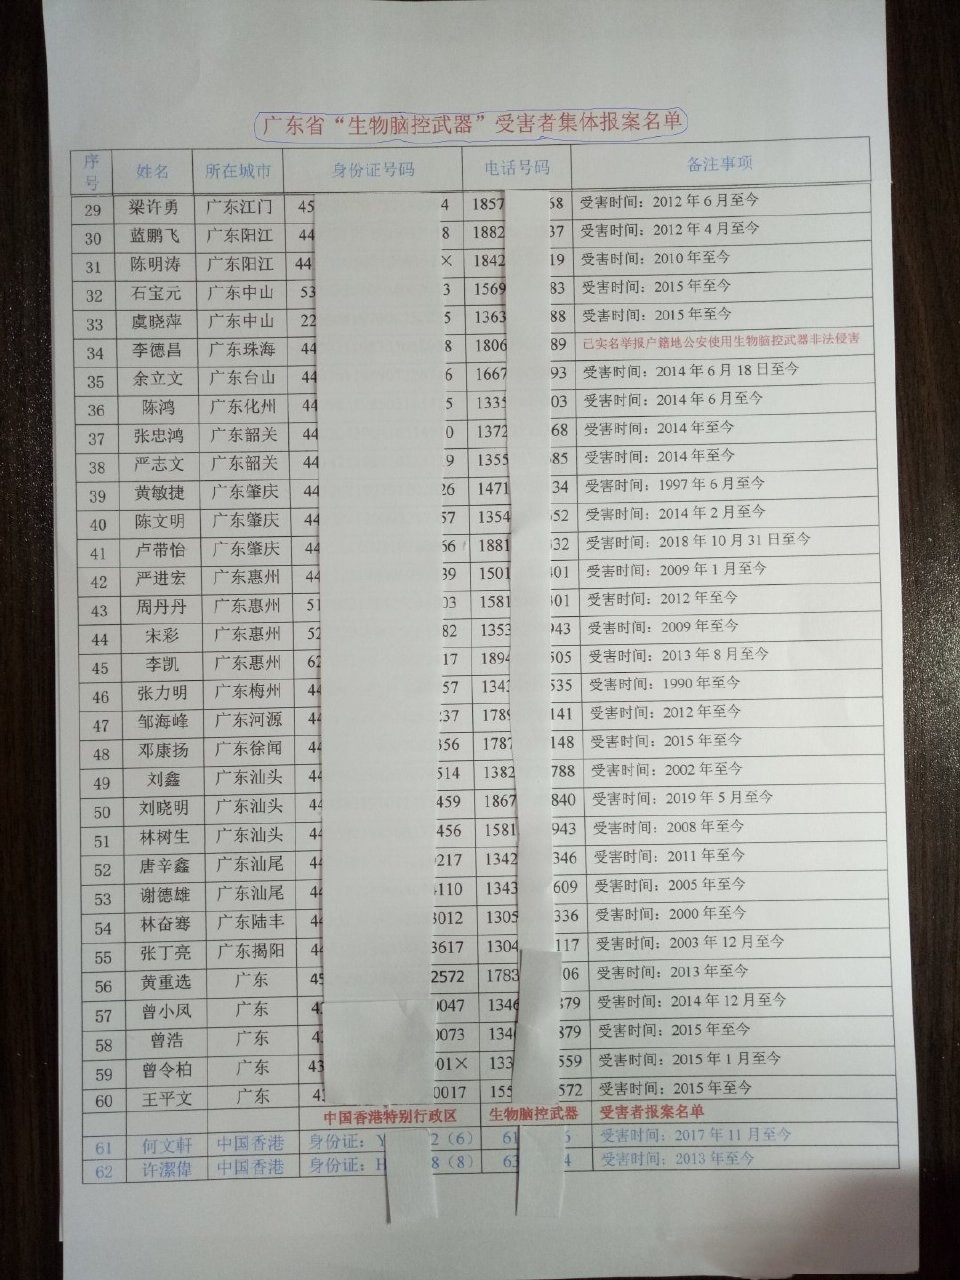 广东省“生物脑控武器”受害者集体报案名单
序号 姓名 所在城市 身份证号码 电话号码 备注事项
29 梁许勇 广东江门 45 4 1857 68 受害时间：2012 年 6 月至今
30 蓝鹏飞 广东阳江 44 8 1882 37 受害时间：2012 年 4 月至今
31 陈明涛 广东阳江 44 × 1842 19 受害时间：2010 年至今
32 石宝元 广东中山 53 3 1569 83 受害时间：2015 年至今
33 虞晓萍 广东中山 22 5 1363 88 受害时间：2015 年至今
34 李德昌 广东珠海 44 8 1806 89 已实名举报户籍地公安使用生物脑控武器非法侵害
35 余立文 广东台山 44 6 1667 93 受害时间：2014 年 6 月 18 日至今
36 陈鸿 广东化州 44 5 1335 03 受害时间：2014 年 6 月至今
37 张忠鸿 广东韶关 44 0 1372 68 受害时间：2014 年至今
38 严志文 广东韶关 44 9 1355 85 受害时间：2014 年至今
39 黄敏捷 广东肇庆 44 26 1471 34 受害时间：1997 年 6 月至今
40 陈文明 广东肇庆 44 57 1354 52 受害时间：2014 年 2 月至今
41 卢带怡 广东肇庆 44 66 1881 32 受害时间：2018 年 10 月 31 日至今
42 严进宏 广东惠州 44 39 1501 401 受害时间：2009 年 1 月至今
43 周丹丹 广东惠州 51 03 1581 301 受害时间：2012 年至今
44 宋彩 广东惠州 52 82 1353 943 受害时间：2009 年至今
45 李凯 广东惠州 62 17 1894 505 受害时间：2013 年 8 月至今
46 张力明 广东梅州 44 57 134 535 受害时间：1990 年至今
47 邹海峰 广东河源 44 237 178 141 受害时间：2012 年至今
48 邓康扬 广东徐闻 44 356 1787 148 受害时间：2015 年至今
49 刘鑫 广东汕头 44 514 1382 788 受害时间：2002 年至今
50 刘晓明 广东汕头 44 459 1867 840 受害时间：2019 年 5 月至今
51 林树生 广东汕头 44 456 1581 943 受害时间：2008 年至今
52 唐辛鑫 广东汕尾 44 0217 1342 346 受害时间：2011 年至今
53 谢德雄 广东汕尾 44 4110 1343 609 受害时间：2005 年至今
54 林奋骞 广东陆丰 44 3012 1305 336 受害时间：2000 年至今
55 张丁亮 广东揭阳 44 3617 1304 117 受害时间：2003 年 12 月至今
56 黄重选 广东 45 2572 1783 06 受害时间：2013 年至今
57 曾小凤 广东 4 0047 1346 879 受害时间：2014 年 12 月至今
58 曾浩 广东 4 0073 134 879 受害时间：2015 年至今
59 曾令柏 广东 43 001× 133 559 受害时间：2015 年 1 月至今
60 王平文 广东 4 0017 155 572 受害时间：2015 年至今
中国香港特别行政区 生物脑控武器 受害者报案名单
61 何文軒 中国香港 身份证：Y 2（6） 61 6 受害时间：2017 年 11 月至今
62 许潔偉 中国香港 身份证：H 8（8） 63 4 受害时间：2013 年至今